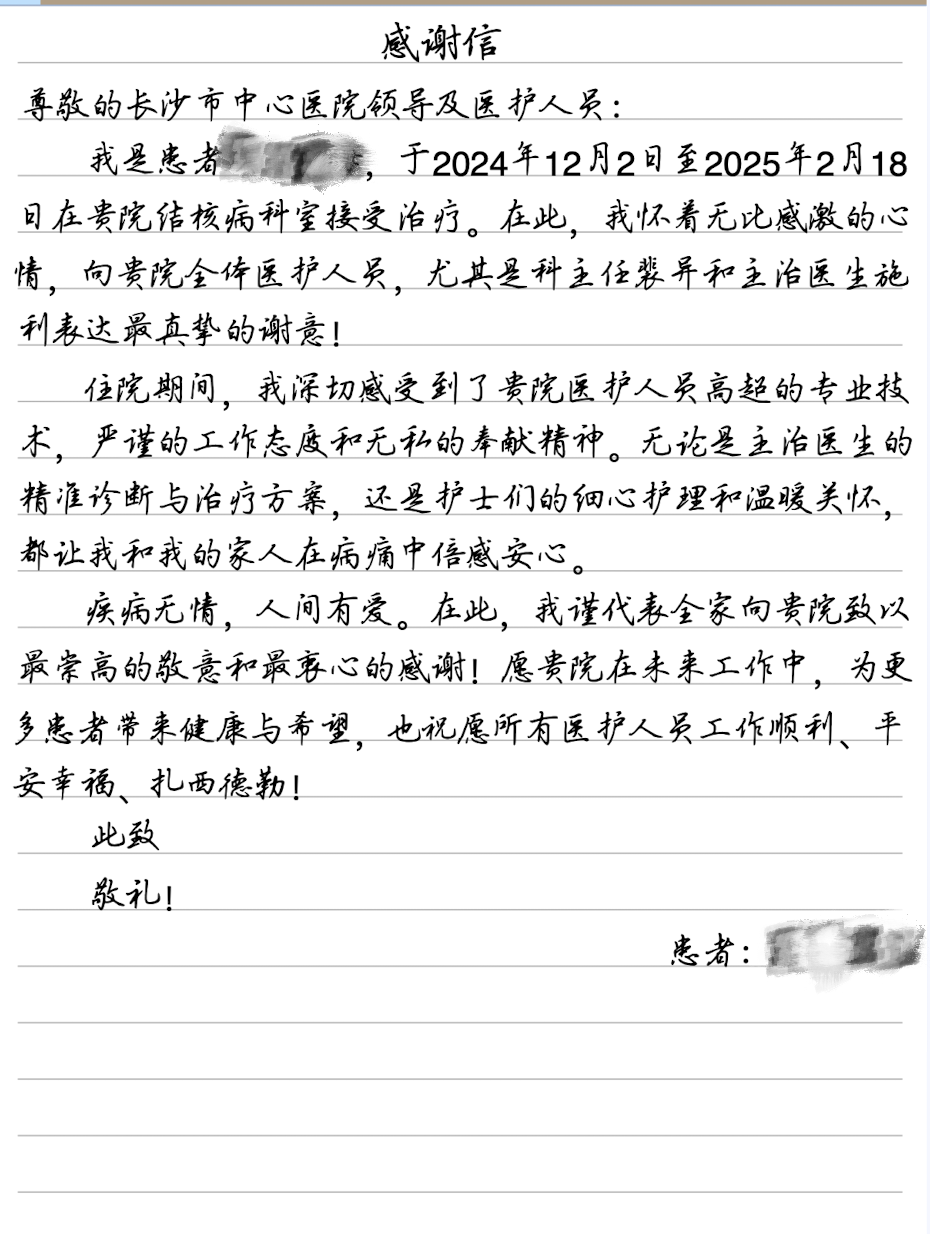 感谢信
尊敬的长沙市中心医院领导及医护人员：
我是患者，于2024年12月2日至2025年2月18
日在贵院结核病科室接受治疗。在此，我怀着无比感激的心
情，向贵院全体医护人员，尤其是科主任裴异和主治医生施
利表达最真挚的谢意！
住院期间，我深切感受到了贵院医护人员高超的专业技
术，严谨的工作态度和无私的奉献精神。无论是主治医生的
精准诊断与治疗方案，还是护士们的细心护理和温暖关怀，
都让我和我的家人在病痛中倍感安心。
疾病无情，人间有爱。在此，我谨代表全家向贵院致以
最崇高的敬意和最衷心的感谢！愿贵院在未来工作中，为更
多患者带来健康与希望，也祝愿所有医护人员工作顺利、平
安幸福、扎西德勒！
此致
敬礼！
患者：